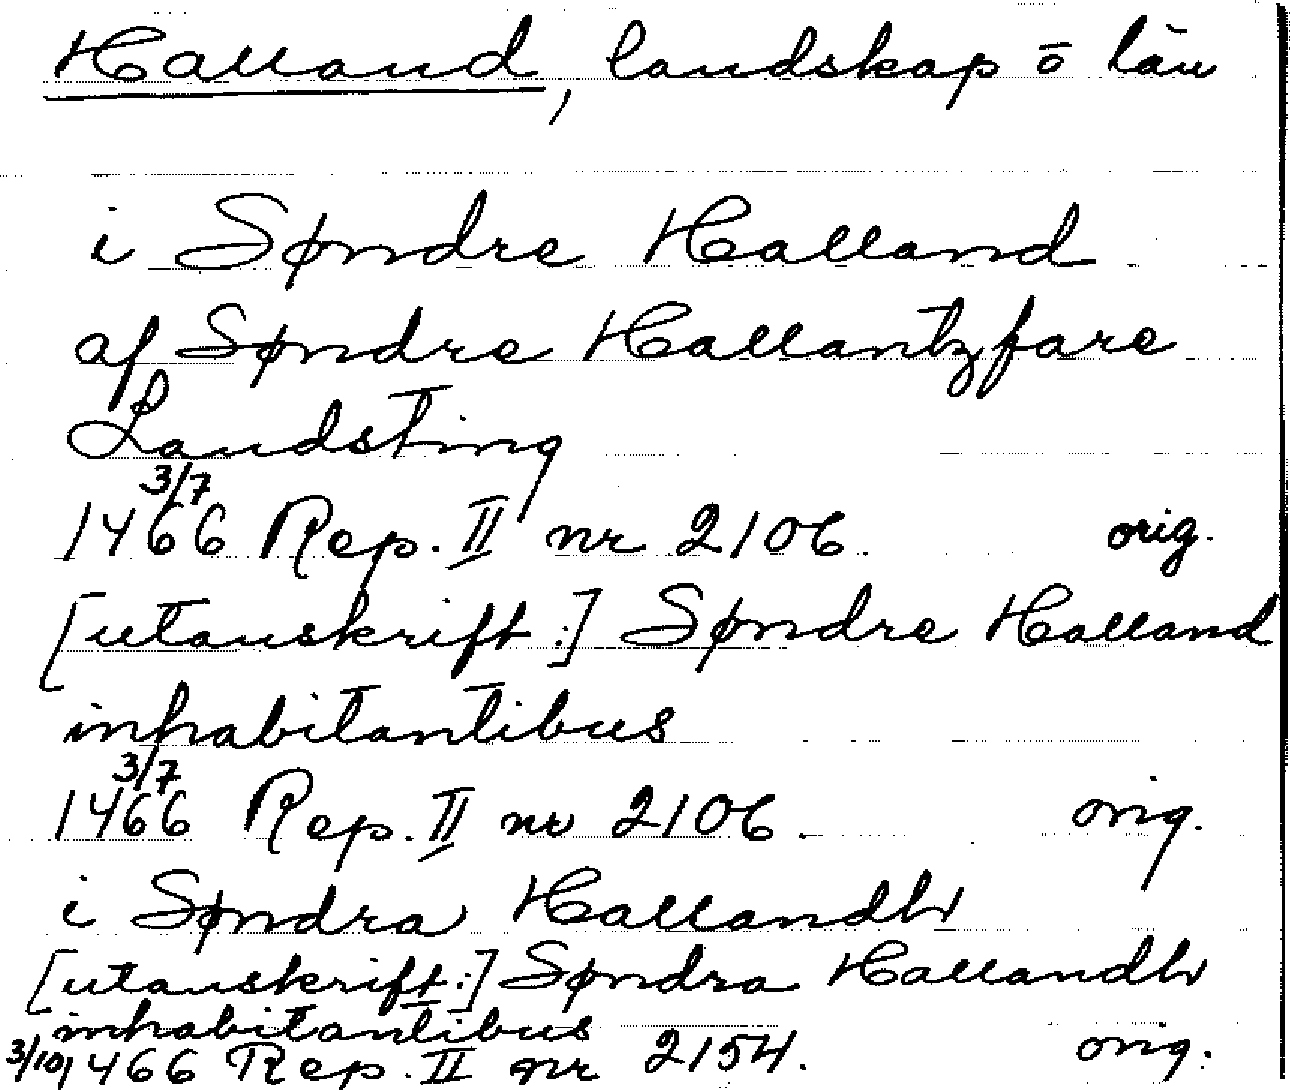 Halland, landskap o län
i Søndre Halland
af Søndre Hallantzfare
Landsting
1466 3/7 Rep. II nr 2106. orig.
[utanskrift:] Søndre Halland
inhabitantibus
1466 3/7 Rep. II nr 2106. orig.
i Søndra Hallandh
[utanskrift:] Søndra Hallandh
inhabitantibus
3/10 1466 Rep. II nr 2154. orig.